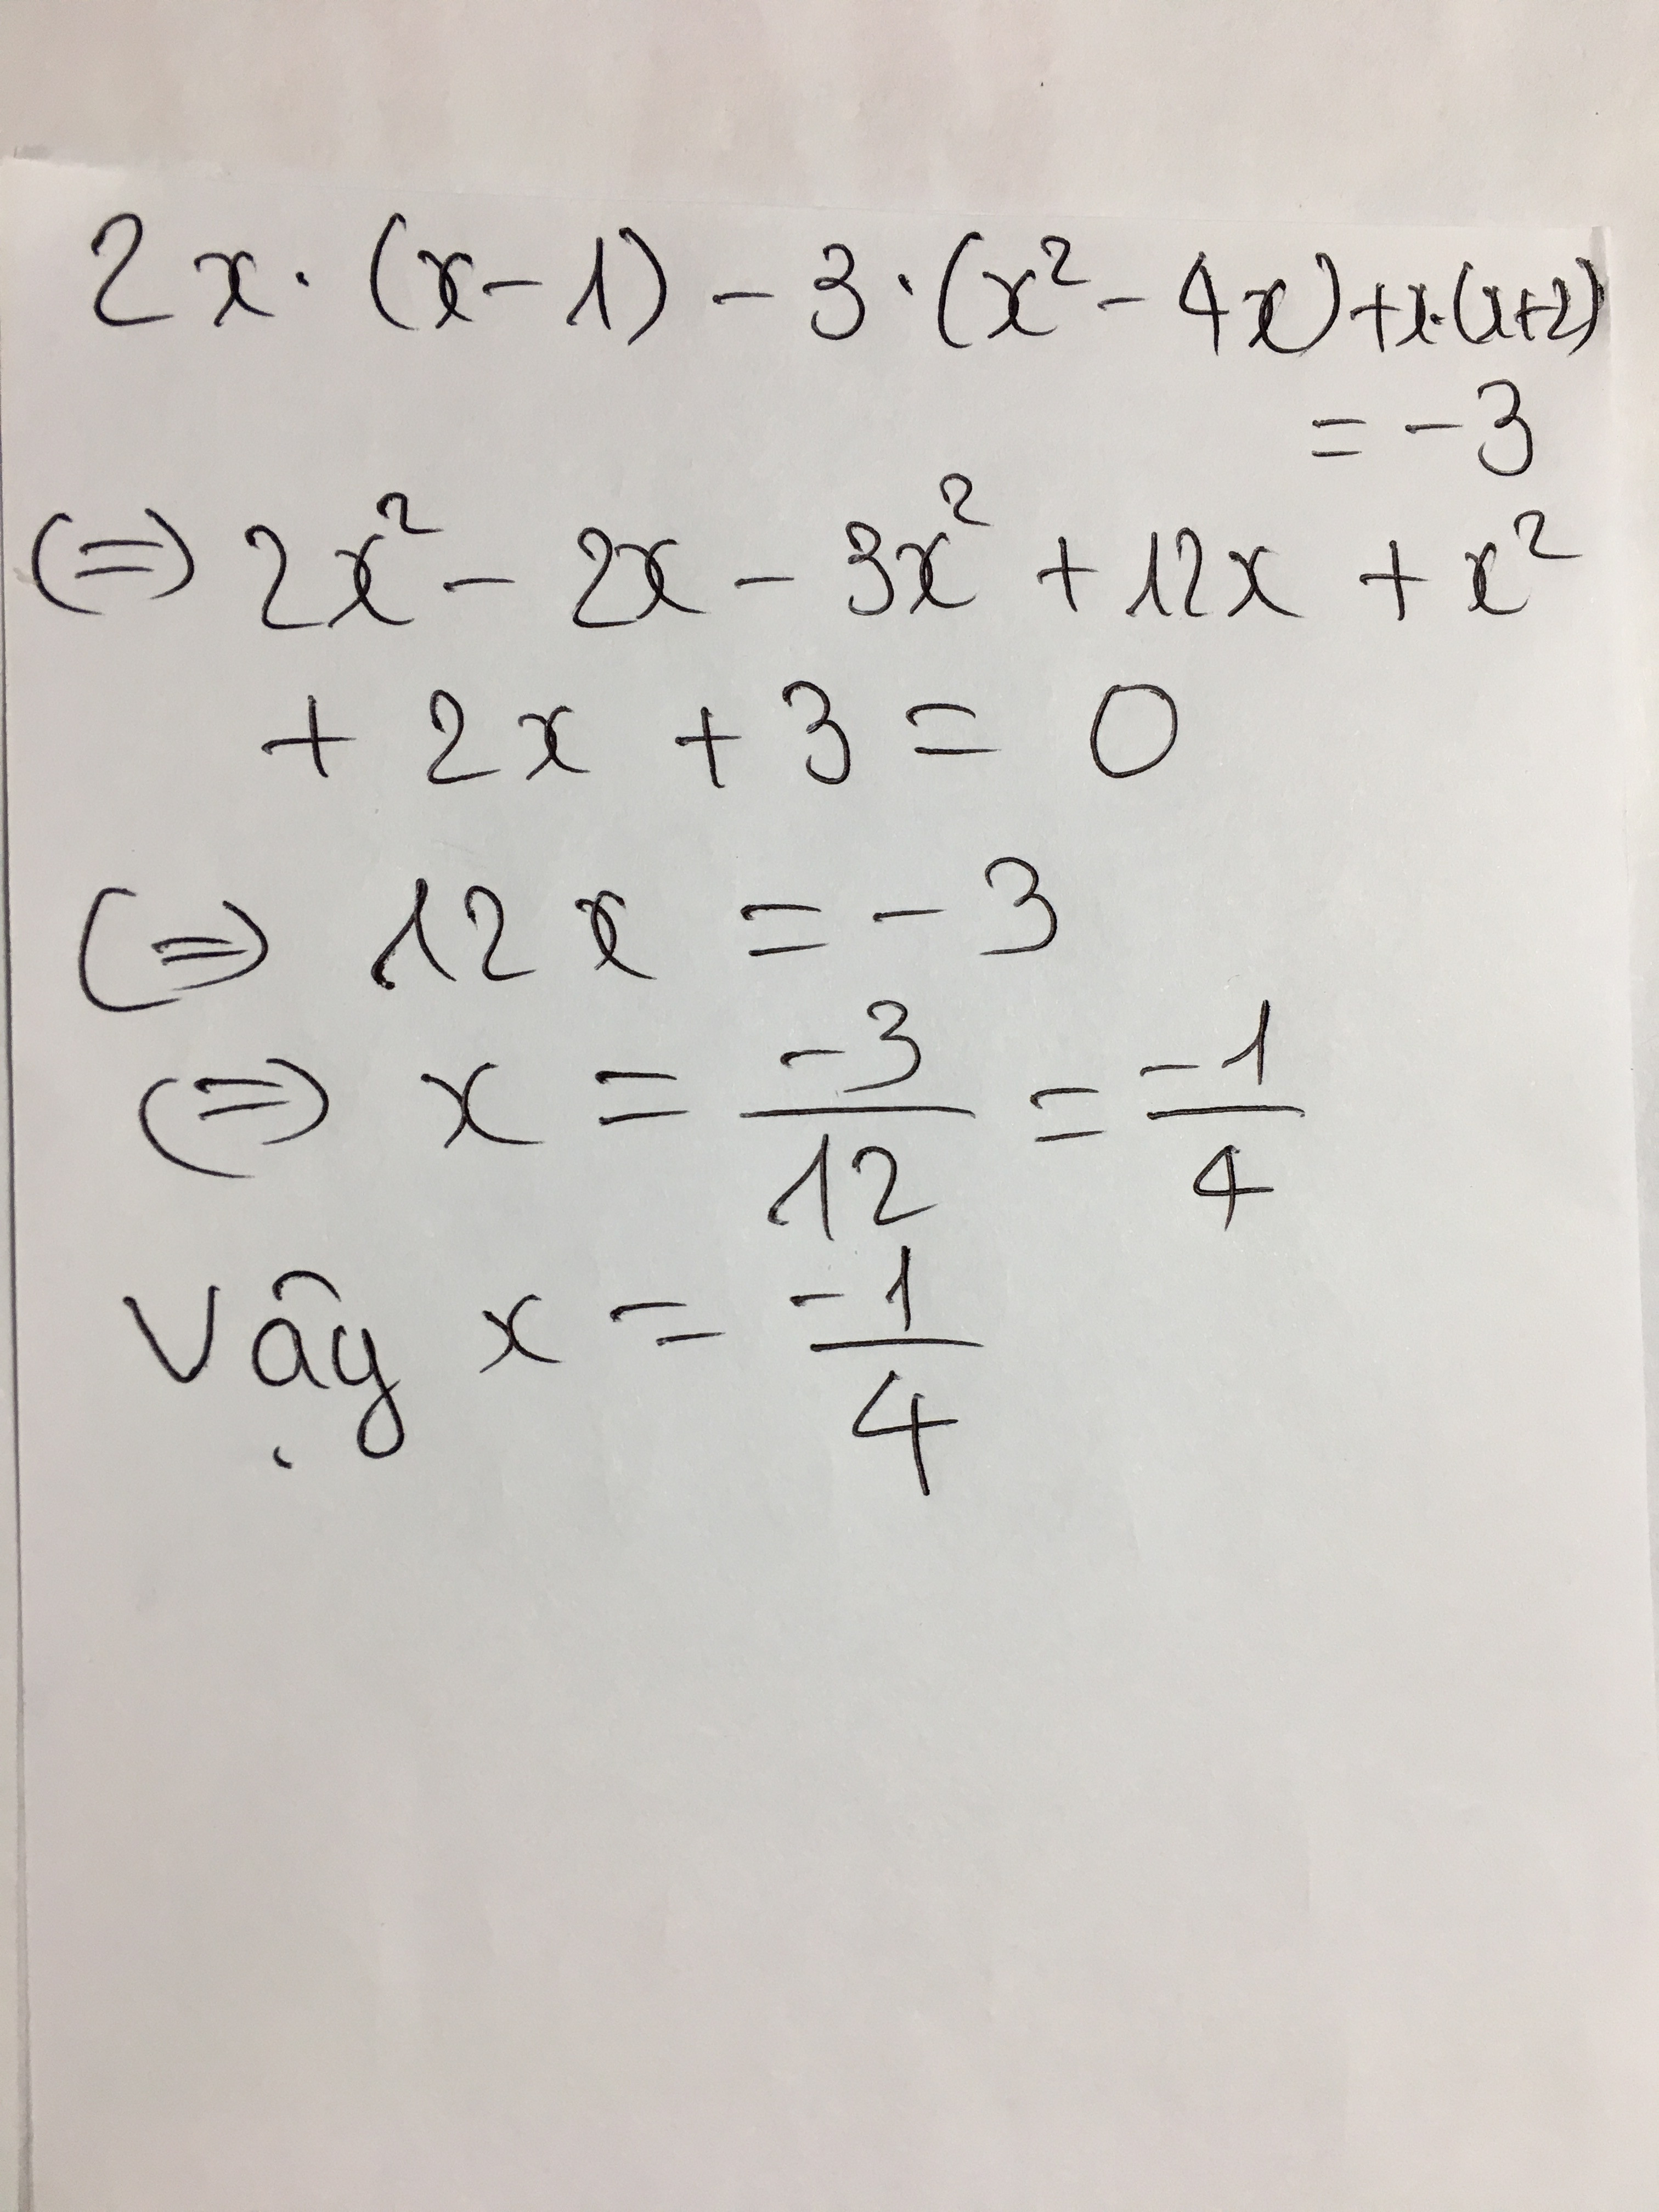 2x · (x - 1) - 3 · (x² - 4x) + x · (x+2)
= -3
(=) 2x² - 2x - 3x² + 12x + x²
+ 2x + 3 = 0
(=) 12x = -3
(=) x = -3/12 = -1/4
Vậy x = -1/4